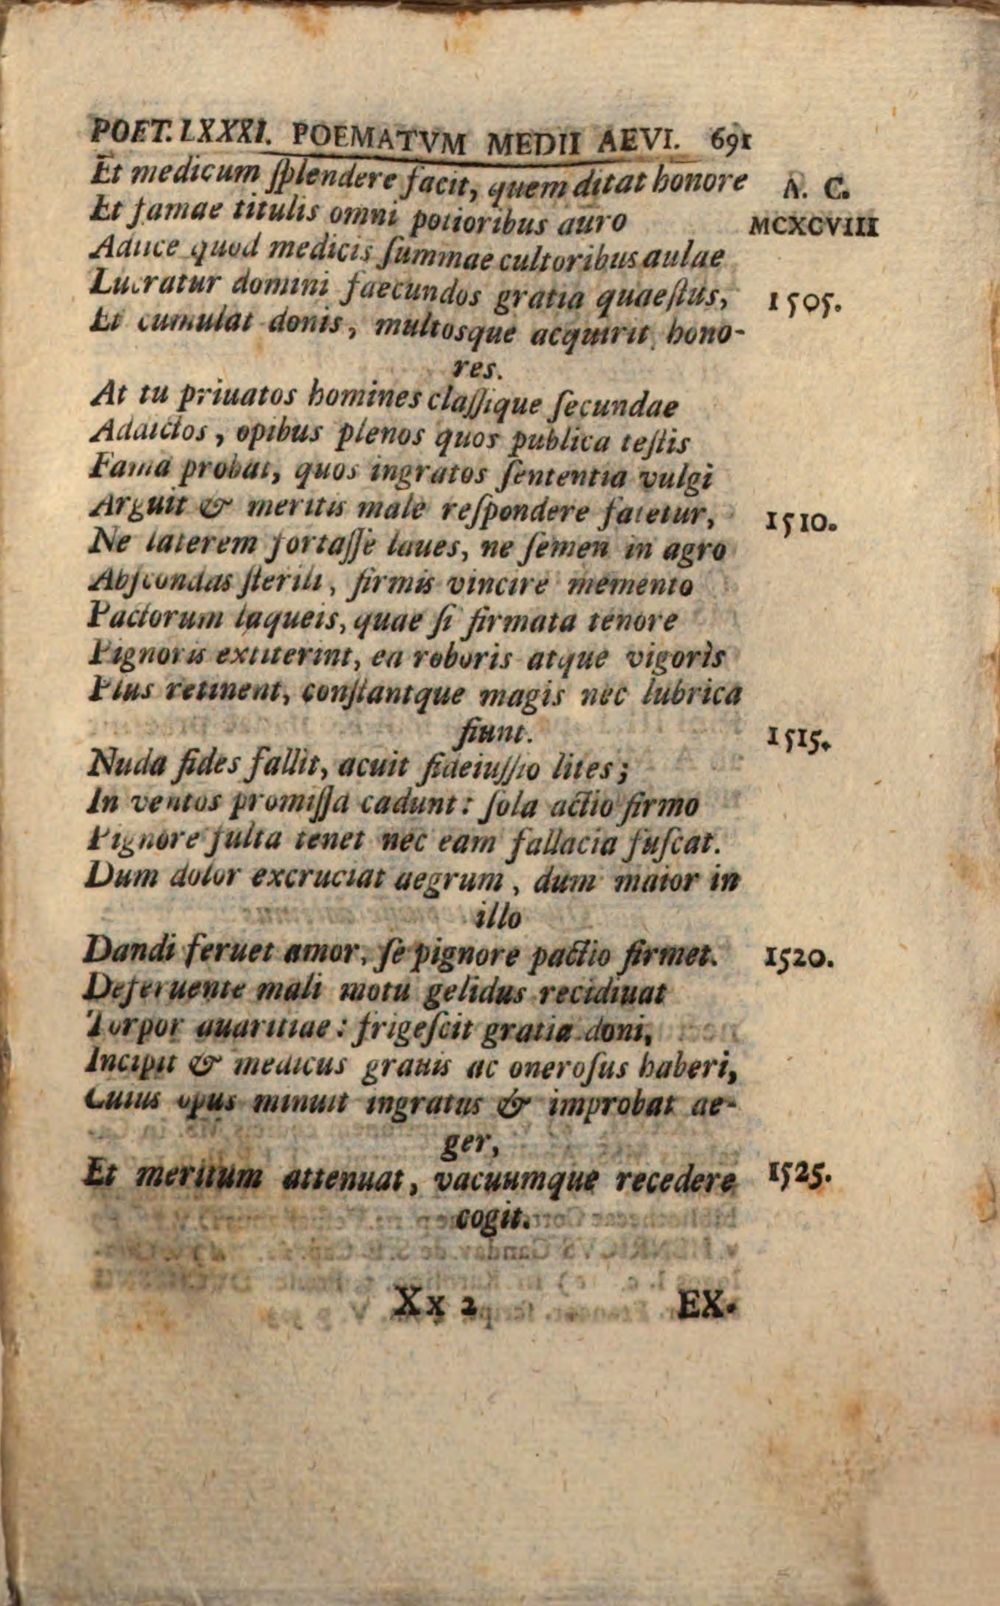 POET. LXXXI. POEMATVM MEDII AEVI. 691
Et medicum ſplendere facit, quem ditat honore
A. C.
Et famae titulis omni potioribus auro
MCXCVIII
Aduce quod medicis ſummae cultoribus aulae
Lucratur domini faecundos gratia quaeſtus,
1505.
Et cumulat donis, multosque acquirit hono-
res.
At tu priuatos homines claſſique ſecundae
Addictos, opibus plenos quos publica teſtis
Fama probat, quos ingratos ſententia vulgi
Arguit & meritis male reſpondere fatetur,
1510.
Ne laterem fortaſſe laues, ne ſemen in agro
Abſcondas ſterili, firmis vincire memento
Pactorum laqueis, quae ſi firmata tenore
Pignoris extiterint, ea roboris atque vigoris
Plus retinent, conſtantque magis nec lubrica
fiunt.
1515.
Nuda fides fallit, acuit fideiuſſio lites;
In ventos promiſſa cadunt: ſola actio firmo
Pignore fulta tenet nec eam fallacia fuſcat.
Dum dolor excruciat aegrum, dum maior in
illo
Dandi feruet amor, ſe pignore pactio firmet.
1520.
Deferuente mali motu gelidus recidiuat
Torpor auaritiae: frigeſcit gratia doni,
Incipit & medicus grauis ac oneroſus haberi,
Cuius opus minuit ingratus & improbat ae-
ger,
Et meritum attenuat, vacuumque recedere
1525.
cogit.
Xx 2
EX-